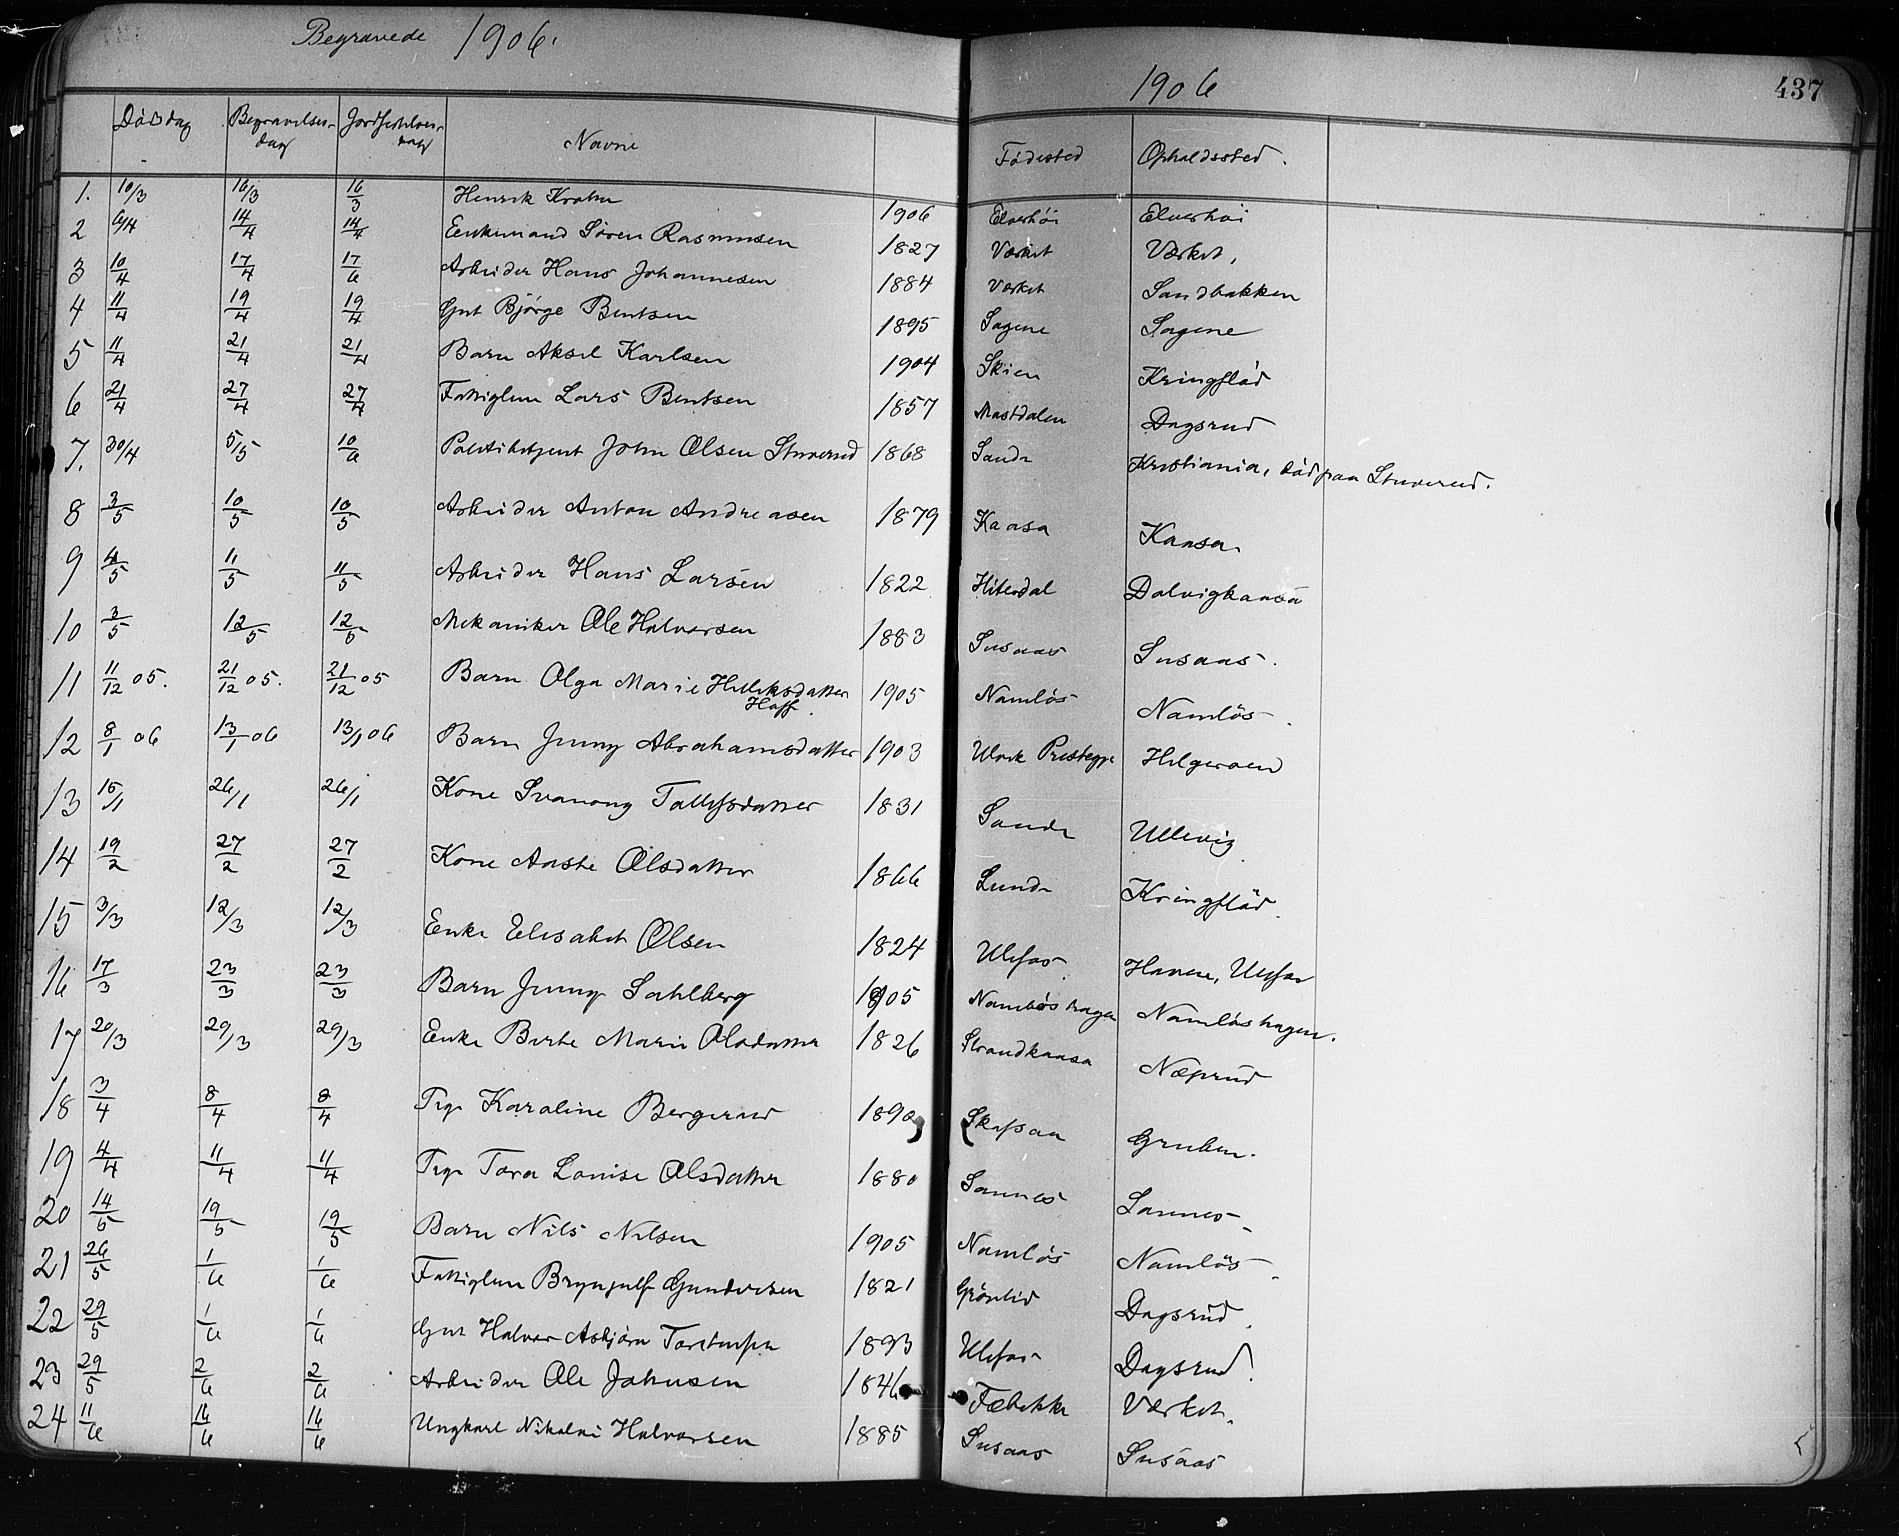 Begravede 1906.
1906
437
Dödsdag Begravelses-dag Jordfæstelses-dag Navne Fødested Opholdssted.
1. 10/3 16/3 16/3 Henrik 1906 Elverhöi Elverhöi
2 6/4 14/4 14/4 Enkemand Søren Rasmusen 1827 Værket Værket,
3 10/4 17/4 17/6 Arbeider Hans Johannesen 1884 Værket Sandbakken
4 11/4 19/4 19/4 Gut Bjørge Bentsen 1895 Sagene Sagene
5 11/4 21/4 21/4 Barn Aksel Karlsen 1904 Skien Kringflåd
6 21/4 27/4 27/4 Fattiglem Lars Bentsen 1857 Mastdalen Dagsrud
7. 30/4 5/5 10/6 Politibetjent John Olsen Stuverud 1868 Sande Kristiania, död paa Stuverud.
8 3/5 10/5 10/5 Arbeider Anton Andreasen 1879 Kaasa Kaasa
9 4/5 11/5 11/5 Arbeider Hans Larsen 1822 Hiterdal Dalvigkaasa
10 3/5 12/5 12/5 Mekaniker Ole Halvorsen 1883 Susaas Susaas.
11 11/12 05. 21/12 05. 21/12 05 Barn Olga Marie Helleksdatter Hoff. 1905 Namlös Namlös.
12 8/1 06 13/1 06 13/1 06 Barn Jenny Abrahamsdatter 1903 Prestegj. Helgeroen
13 15/1 26/1 26/1 Kone Svanaug Tollefsdatter 1831 Sande Ullevig
14 19/2 27/2 27/2 Kone Aaste Olsdatter 1866 Lunde Kringflåd.
15 3/3 12/3 12/3 Enke Elisabet Olsen 1824 Ulefos Havene, Ulefos
16 17/3 23/3 23/3 Barn Jenny Sahlberg 1905 Namløshagen Namløshagen.
17 20/3 29/3 29/3 Enke Birte Marie Olsdatter 1826 Strandkaasa Næprud
18 3/4 8/4 8/4 Pige Karoline Bergerud 1890 Skafsaa Gruben.
19 4/4 11/4 11/4 Pige Tora Lovise Olsdatter 1880 Sannes Sannes
20 14/5 19/5 19/5 Barn Nils Nilsen 1905 Namlös Namlös
21 26/5 1/6 1/6 Fattiglem Bryngulf Gundersen 1821 Grönlid Dagsrud.
22 29/5 1/6 1/6 Gut Halvor Asbjørn Torstensen 1893 Ulefos Dagsrud.
23 29/5 2/6 2/6 Arbeider Ole Johnsen 1846 Fæbekke Værket.
24 11/6 16/6 16/6 Ungkarl Nikolai Halvorsen 1885 Susaas Susaas